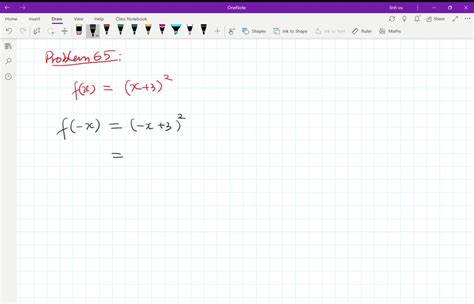 OneNote
linh vu
File Home Insert Draw View Help Class Notebook
Shapes Ink to Shape Ink to Text Ruler Maths
Problem 65:
f(x) = (x+3)²
f(-x) = (-x+3)²
=